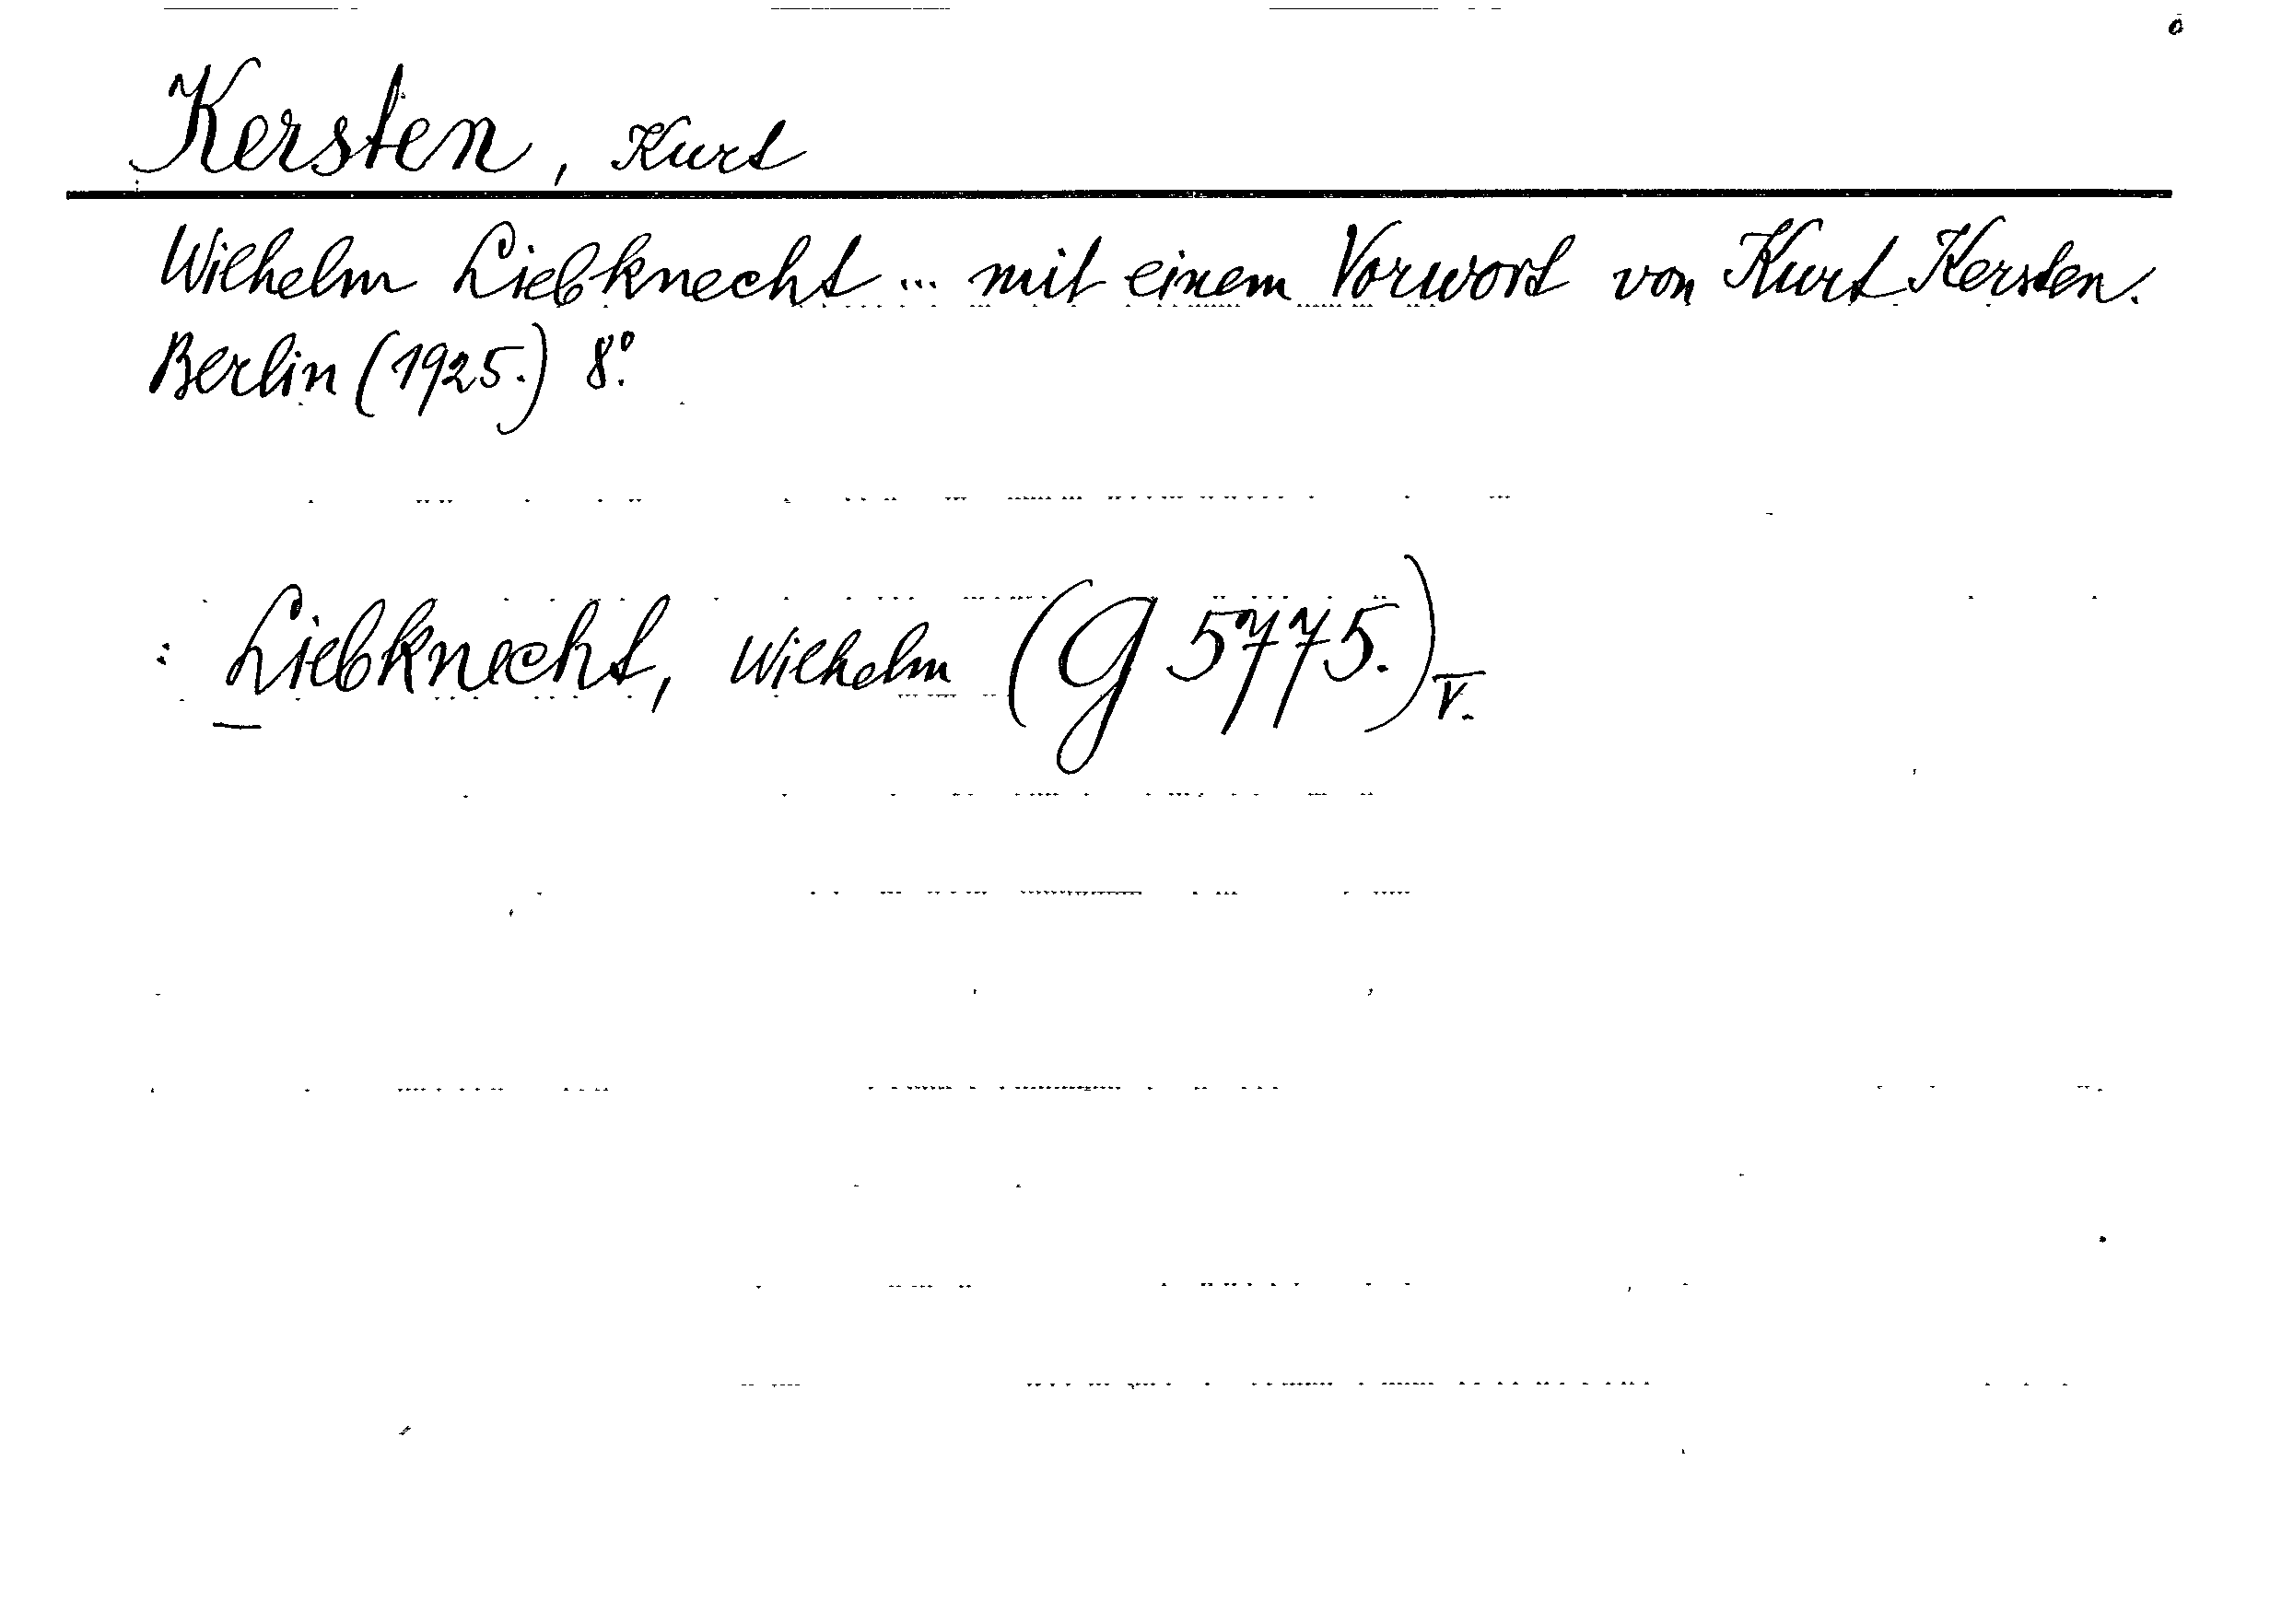 Kersten, Kurt
Wilhelm Liebknecht ... mit einem Vorwort von Kurt Kersten.
Berlin (1925.) 8°.
: Liebknecht, Wilhelm (G 5775.) V.